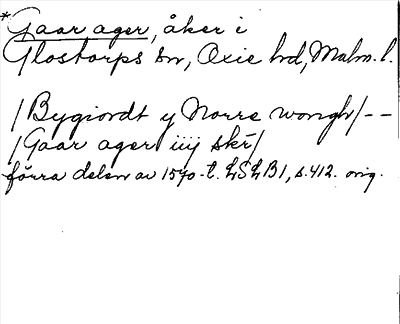 *Gaar ager, åker i
Glostorps sn, Oxie hd, Malm. l.
/Bygiordt y Norre wongh/--
/Gaar ager iiij skr/
förra delen av 1570-t. LSLB1, s.412. orig.